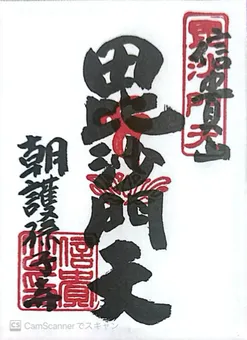 信貴山
毘沙門天
朝護孫子寺
信貴
CamScanner でスキャン